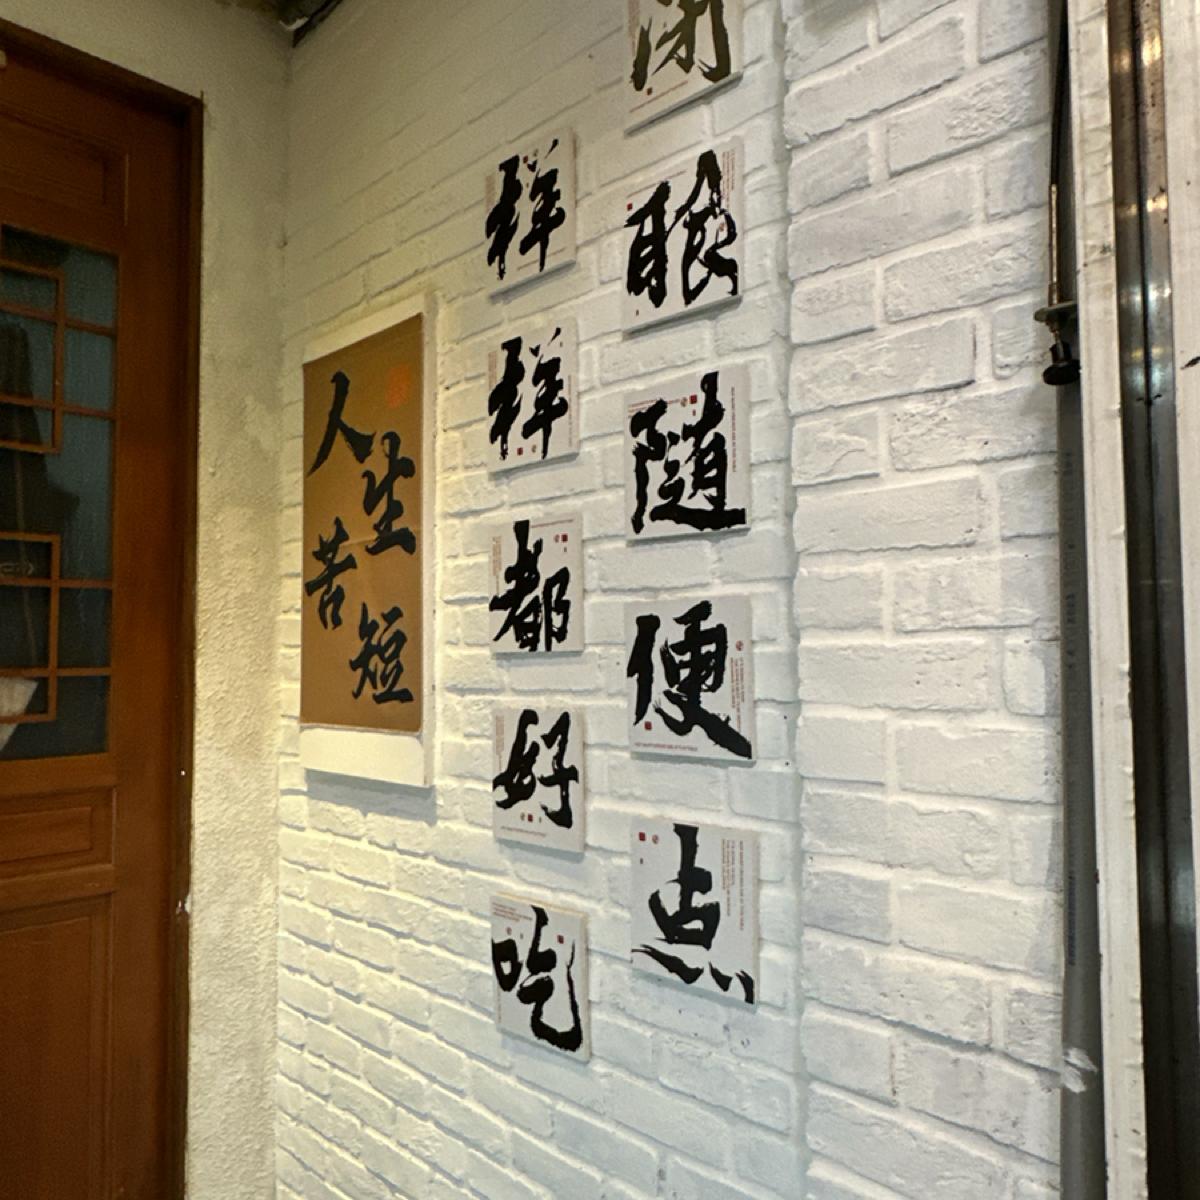 闭眼随便点
样样都好吃
人生苦短